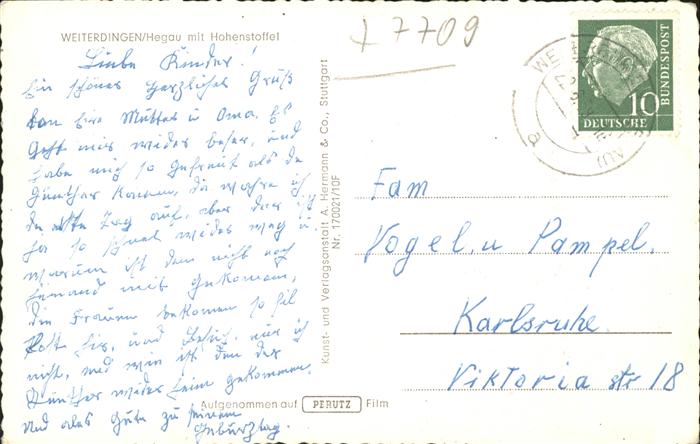 WEITERDINGEN/Hegau mit Hohenstoffel
+ 7709
Liebe Kinder!
Ein schönes herzliches Grüß
von Eure Mutter u Oma. Es
Geht mir wieder beser, und
habe mich so Gefreut als de
Günther kamm, da wahre ich
den Tag auf, aber der
so schnel wieder weg u
warum ist den nicht noch
jemand mit Gekommen,
die Frauen bekomen so fil
Post hir, und Besuch, nur ich
nicht, und wie ist den der
Günther wieder heim gekommen.
und ales Gute zu seinem
Geburztag.
Kunst- und Verlagsanstalt A. Hermann & Co., Stuttgart
Nr. 17002I/10F
Aufgenommen auf PERUTZ Film
10
DEUTSCHE
BUNDESPOST
Fam
Vogel. u Pampel.
Karlsruhe.
Viktoria str 18